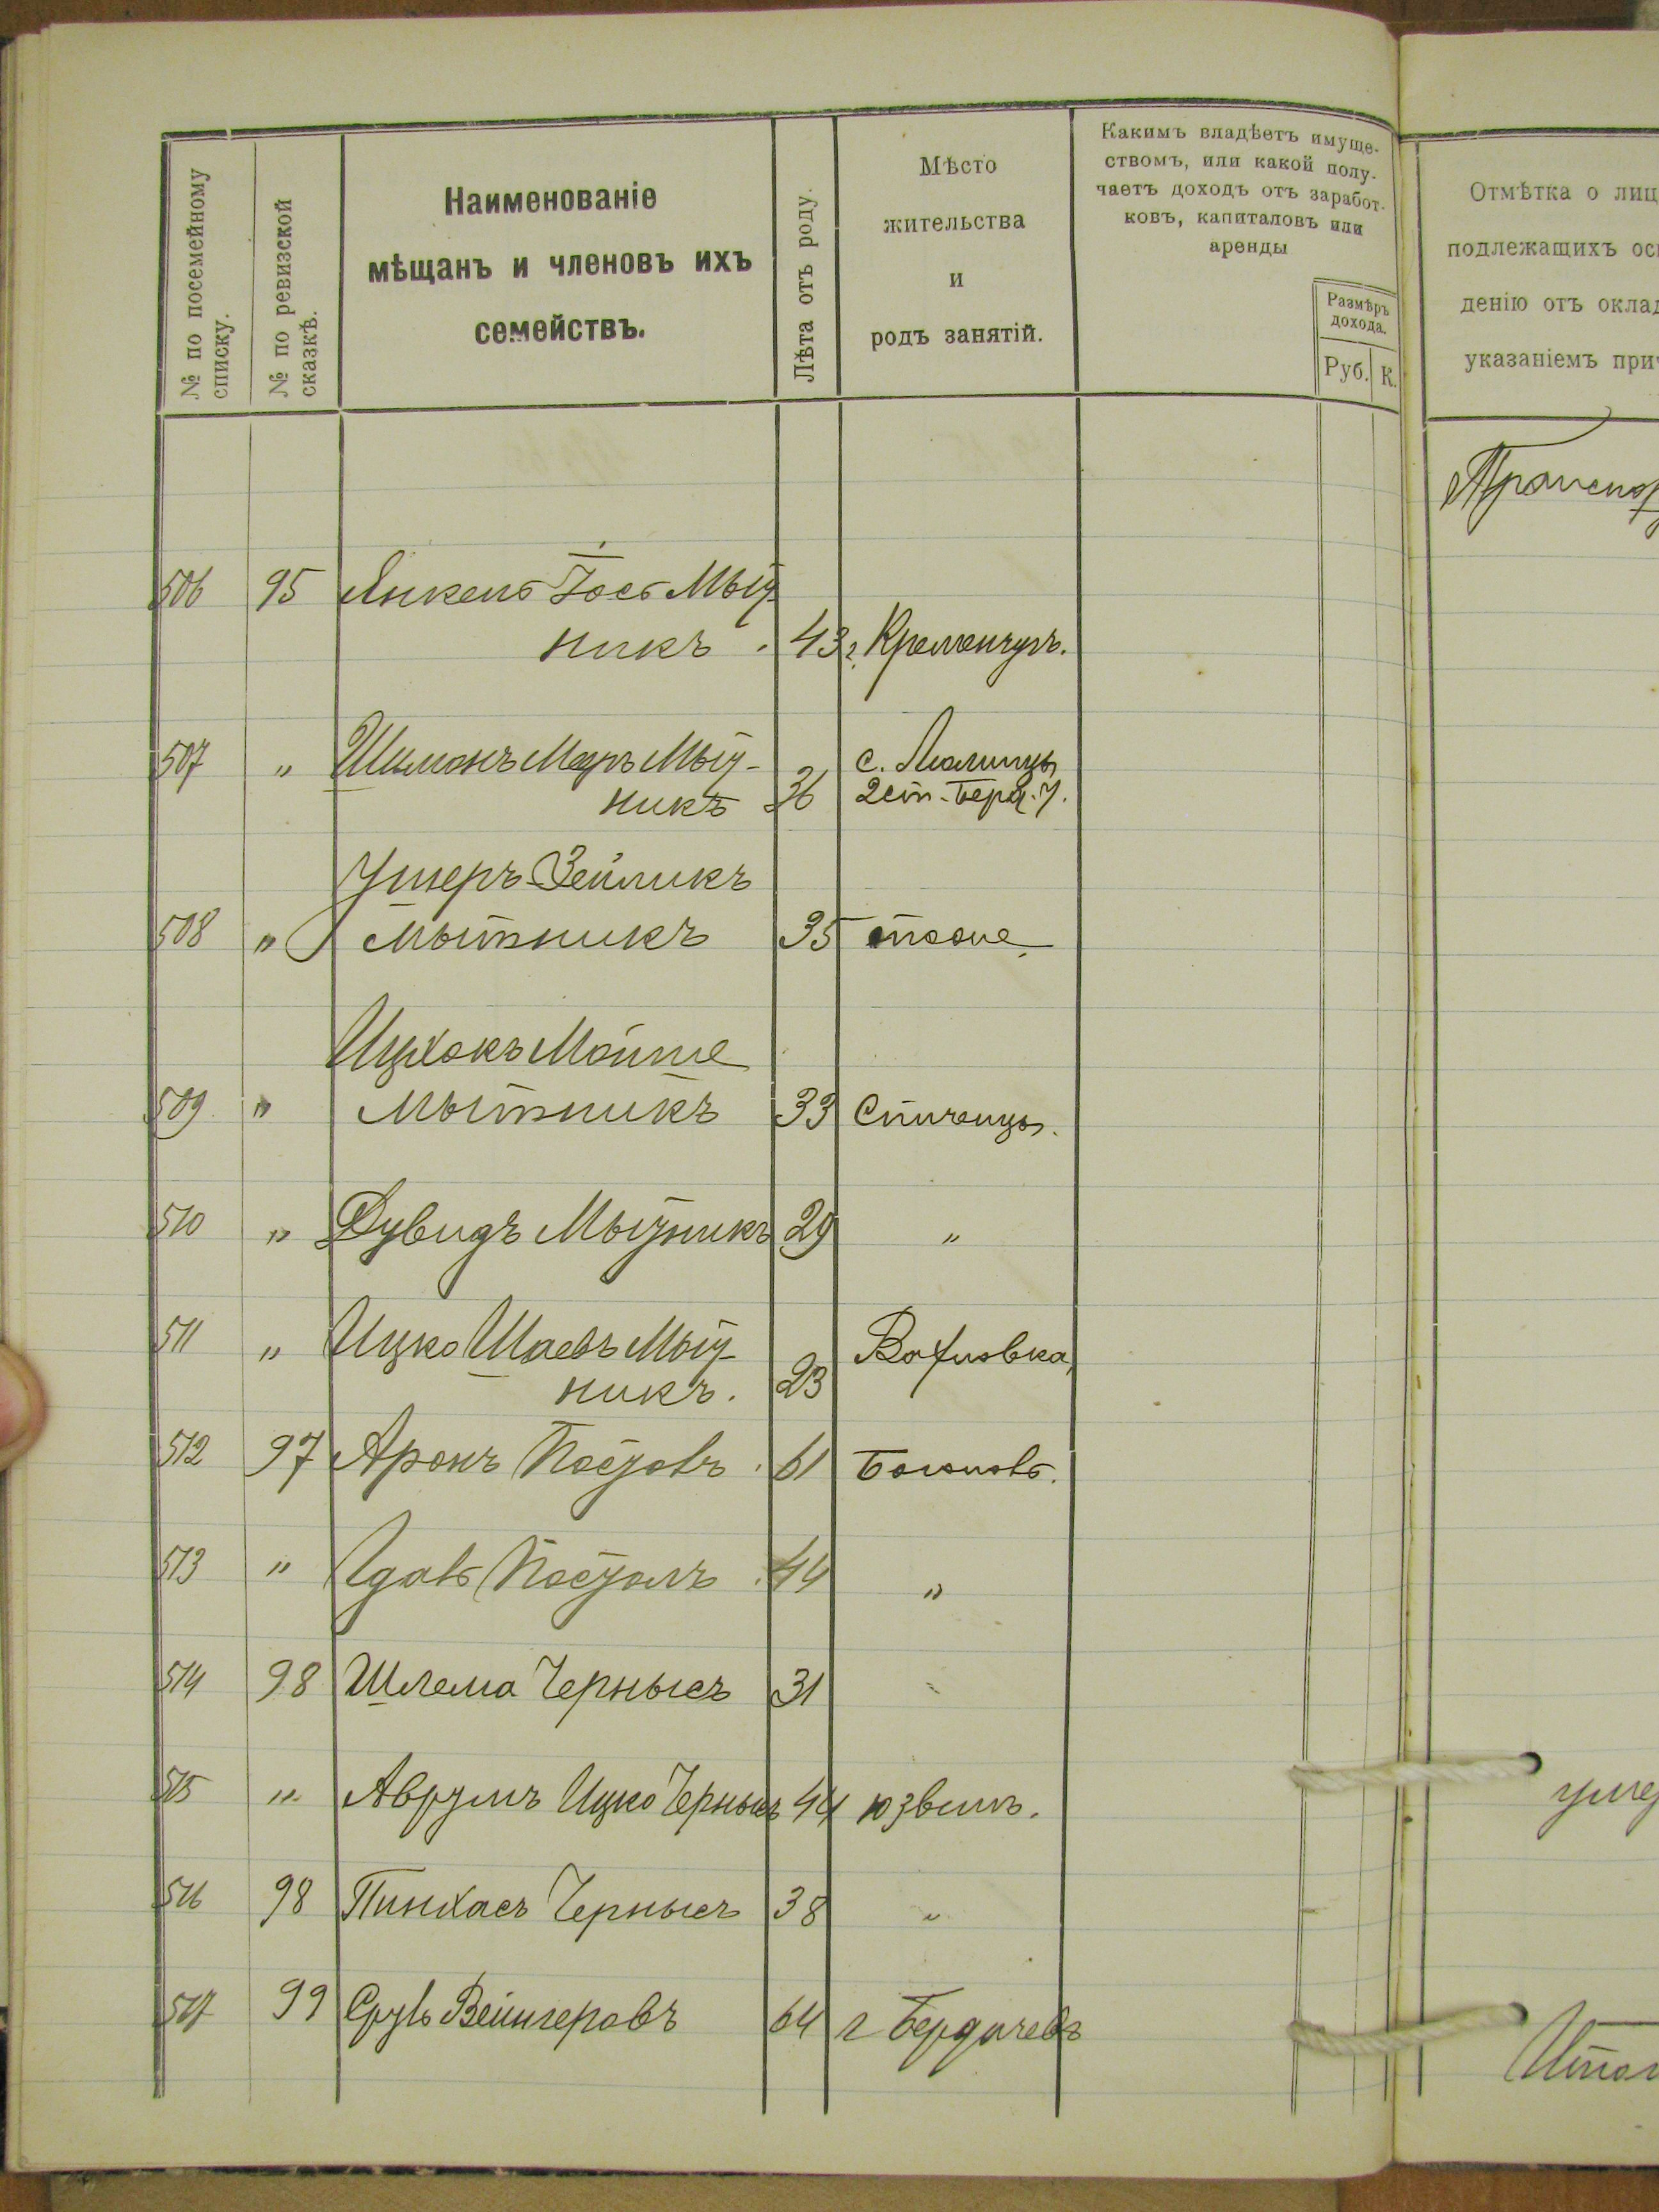 № по посемейному
списку.
№ по ревизской
сказкѣ.
Наименованіе
мѣщанъ и членовъ ихъ
семействъ.
Лѣта отъ роду.
Мѣсто
жительства
и
родъ занятій.
Какимъ владѣетъ имуще-
ствомъ, или какой полу-
чаетъ доходъ отъ заработ-
ковъ, капиталовъ или
аренды
Размѣръ
дохода.
Руб. К.
Отмѣтка о лиц
подлежащихъ осв
денію отъ оклад
указаніемъ прич
506 95 Янкель Іось Мыт-
никъ 43 г. Кременчугъ.
507 " Шимонъ Меръ Мыт-
никъ 36 с.
2 ст. Берд. у.
Ушеръ Зейликъ
508 " Мытникъ 35 тоже
Ицхокъ Мойше
509 " Мытникъ 33 Спиченцы.
510 " Дувидъ Мытникъ 29 "
511 " Ицко Шаевъ Мыт-
никъ. 23 Вахновка
512 97 Аронъ Постовъ 61
513 " 44 "
514 98 Шлема Чернысъ 31 "
515 " Аврумъ Ицко Чернысъ 44 Юзвинъ.
516 98 Пинхасъ Чернысъ 38 "
517 99 Сруль Вейнгеровъ 64 г Бердичевъ
Транспор
уме
Итог